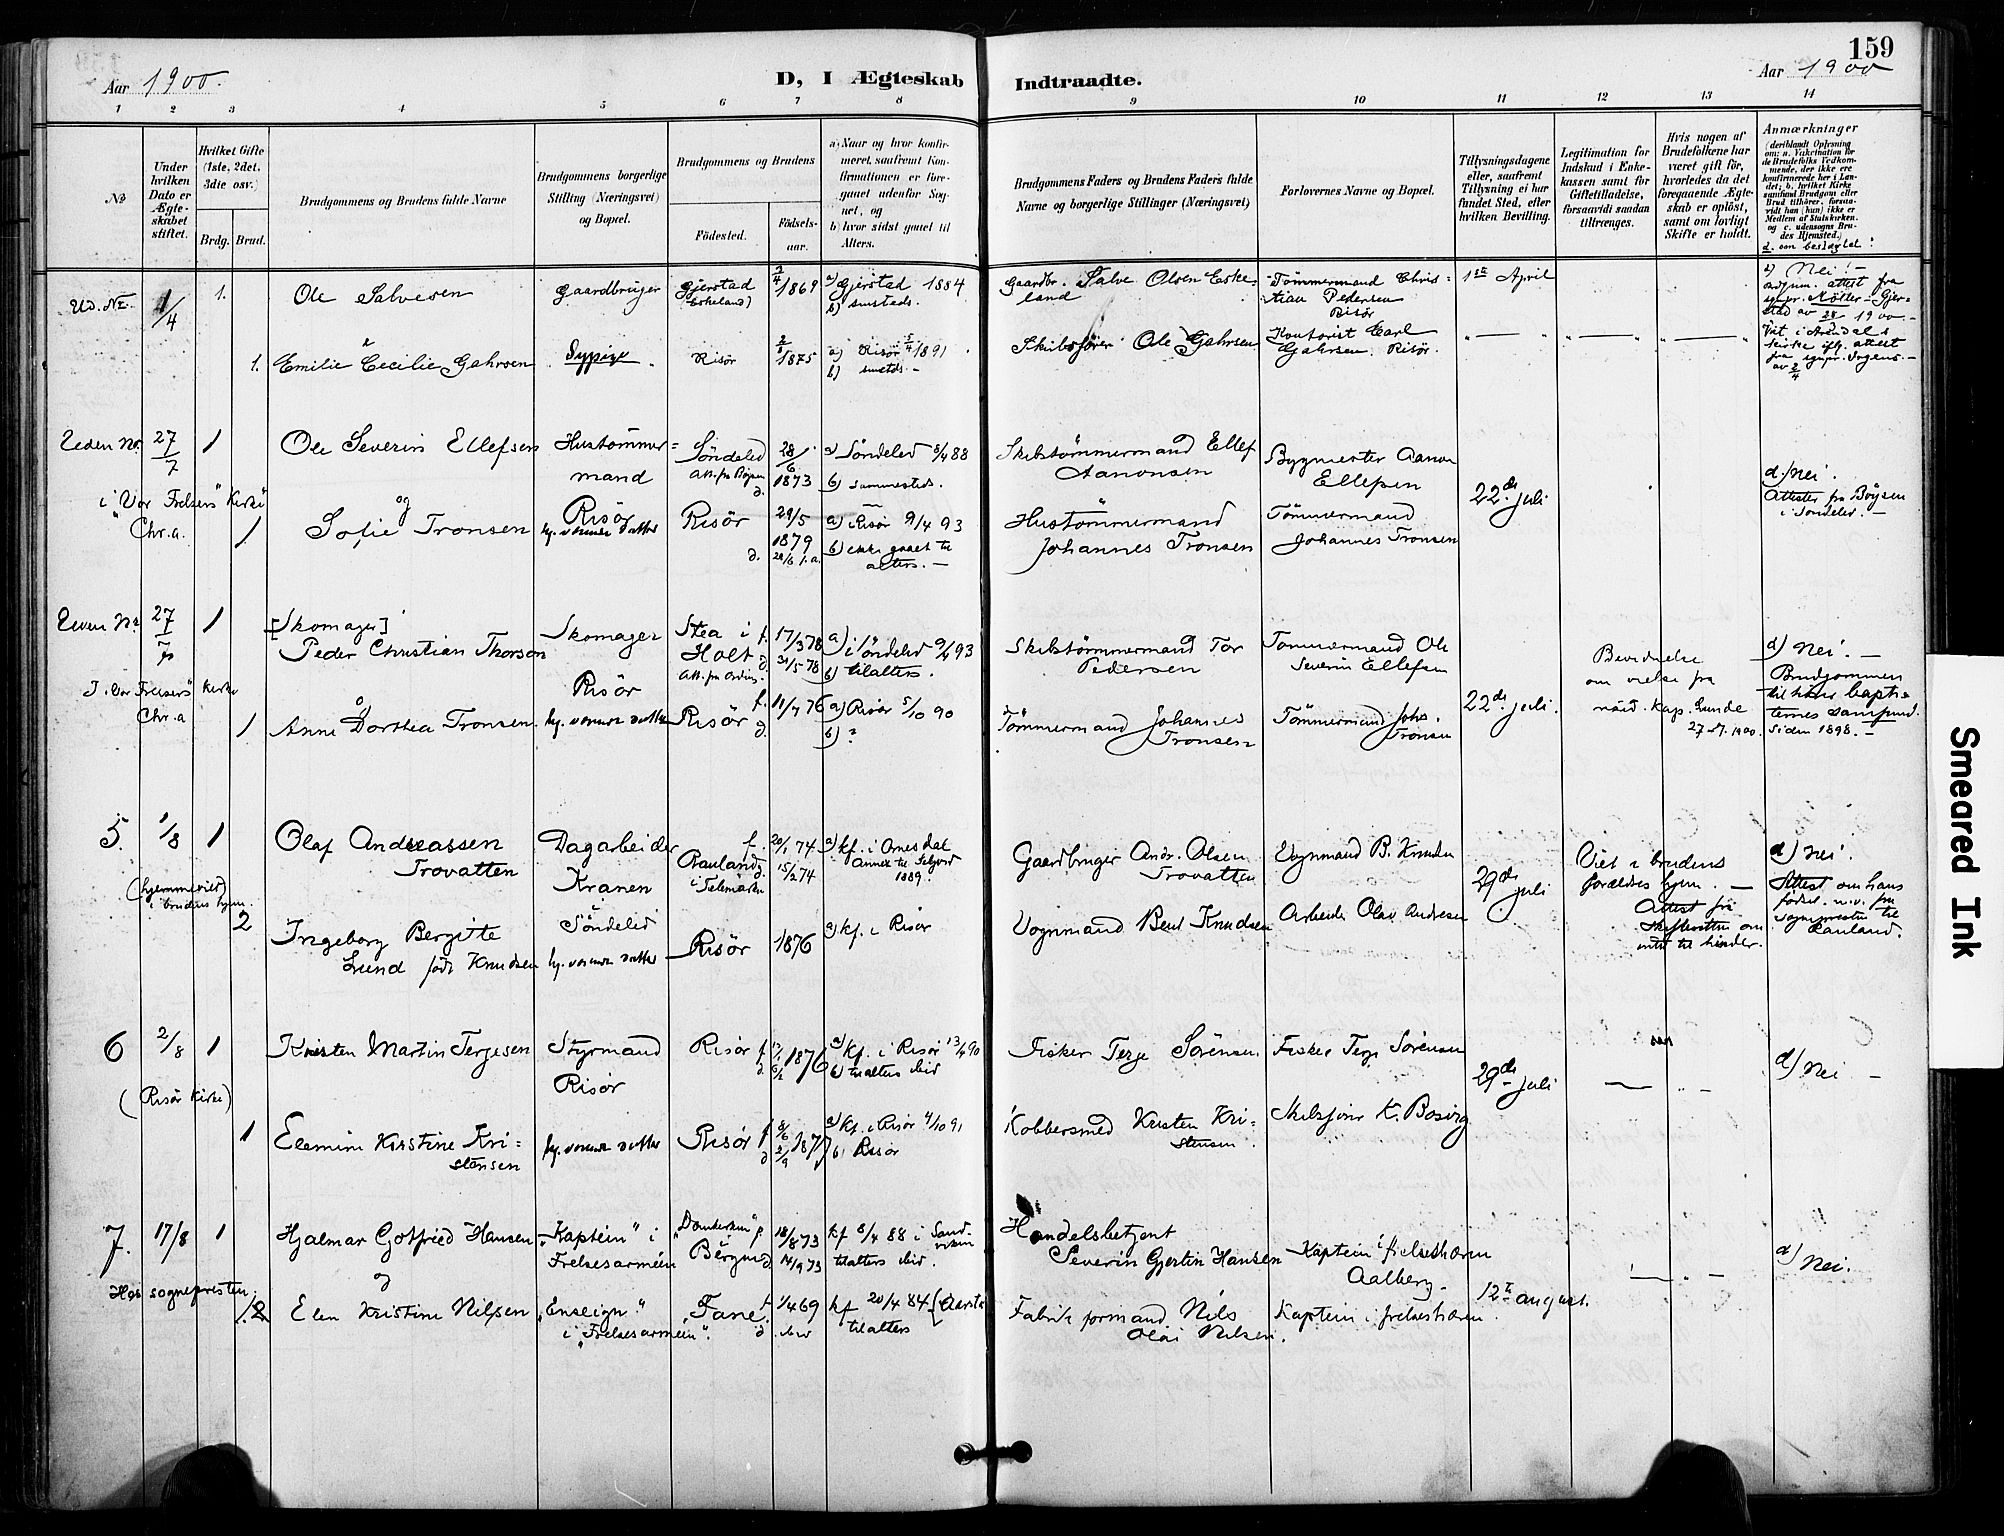 159
Aar 1900.
D, I Ægteskab
Indtraadte.
Aar 1900
1 2 3 4 5 6 7 8 9 10 11 12 13 14
No
Under hvilken Dato er Ægteskabet stiftet.
Hvilket Gifte (1ste, 2det, 3die osv.)
Brdg. Brud.
Brudgommens og Brudens fulde Navne
Brudgommens borgerlige Stilling (Næringsvei) og Bopæl.
Brudgommens og Brudens
Fødested.
Fødselsaar.
a) Naar og hvor konfirmeret, saafremt Konfirmationen er foregaaet udenfor Sognet, og
b) hvor sidst gaaet til Alters.
Brudgommens Faders og Brudens Faders fulde Navne og borgerlige Stillinger (Næringsvei)
Forlovernes Navne og Bopæl.
Tillysningsdagene eller, saafremt Tillysning ei har fundet Sted, efter hvilken Bevilling.
Legitimation for Indskud i Enkekassen samt for Giftetilladelse, forsaavidt saadan tiltrænges.
Hvis nogen af Brudefolkene har været gift før, hvorledes da det foregaaende Ægteskab er opløst, samt om lovligt Skifte er holdt.
Anmærkninger
(deriblandt Oplysning om: a. Vakcination for de Brudefolks Vedkommende, der ikke ere konfirmerede her i Landet; b. hvilket Kirkesamfund Brudgom eller Brud tilhører, forsaavidt han (hun) ikke er Medlem af Statskirken. og c. udensogns Brudes Hjemsted.)
d. om beslægtet!
Ud. Nr. 1/4 1. Ole Salvesen Gaardbruger Gjerstad (Eskeland) 2/4 1869 a) Gjerstad 1884 b) smsteds.
Gaardbr. Salve Olsen Eskeland Tømmermand Christian Pedersen Risør 1ste April
d) Nei! —
attest fra sgnpr. Gjerstad av 28 1900. —
1. Emilie Cecilie Gahrsen Sypige. Risør 2/8 1875 a) Risør 5/4 1891. b) smstds. —
Skibsfører Ole Gahrsen Kontorist Carl Gahrsen. Risør.
Viet i Arendals kirke iflg. attest fra sgnpr. av 2/4
Uden Nr. 27/7 1 Ole Severin Ellefsen Hustømmermand Søndeled 28/6 1873 d. a) Søndeled 8/4 88 b) sammesteds.
Skibstømmermand Ellef Aanonsen Bygmester Aanon Ellefsen 22de juli
d. / Nei.
Attester fra Böysen i Søndeled. —
i "Vor Frelsers" Kirke Chr.a. og
1 Sofie Tronsen Risør hj. værende datter Risør 29/5 1879 d. 29/6 s.a. a) i Risør 9/4 93 b) ikke gaaet til alters. —
Hustømmermand Johannes Tronsen Tømmermand Johannes Tronsen
Uden Nr. 27/7 1 [Skomager] Peder Christian Thorsen Skomager Risør Stea i Holt f. 17/3 78 d. 31/5 78 a) i Søndeled 9/4 93 b) tilalters.
Skibstømmermand Tor Pedersen Tømmermand Ole Severin Ellefsen
Bevidnelse om vielse fra resid. kap. Lunde 27-7. 1900.
d) Nei. —
Brudgommen tilhører baptisternes samfund. siden 1898. —
I "Vor Frelsers" kirke Chr.a og
1 Anne Dorthea Tronsen hj. værende datter Risør f. 11/7 76 d. a) Risør 5/10 90 b) ?
Tømmermand Johannes Tronsen Tømmermand Johs. Tronsen 22de juli.
5. 1/8 1 Olaf Andreassen Trovatten Dagarbeider Kranen Søndeled Rauland i Telemarken f. 20/1 74 d. 15/2 74 a) kf. i Omesdal Annex til Seljord 1889.
Gaardbruger Andr. Olsen Trovatten Vognmand B. Knudsen 29de juli
Viet i brudens forældres hjem. —
Attest fra Skifteretten om intet til hinder.
d) Nei.
Attest om hans fødsel m.v. fra sognepresten til Rauland.
(hjemmeviet) i brudens hjem.
2 Ingeborg Bergitte Lund født Knudsen hj. værende datter Risør 1876 a) kf. i Risør
Vognmand Bent Knudsen Arbeider Olav Andresen
6 2/8 1 Kristen Martin Terjesen Styrmand Risør Risør f. 13/1 d. 6/2 1876 a) kf. i Risør 13/4 90 b) tilalters ibid
Fisker Terje Sørensen Fisker Terje Sørensen 29de juli
d) Nei —
(Risør Kirke)
1 Elemine Kirstine Kristensen hj. værende datter Risør f 8/6 d 2/9 1877 a) kf. i Risør 4/10 91 b) Risør
Kobbersmed Kristen Kristensen Skibsfører K. Bosvig
7. 17/8 1 Hjalmar Gotfried Hansen "Kaptein" i Frelsesarméen "Domkirken" Bergen f. 18/8 73 d 14/9 73 kf 8/4 88 i Sandviken tilalters ibid.
Handelsbetjent Severin Gjertin Hansen Kaptein i frelseshæren Aalberg. 12te august.
d) Nei.
Hos sognepresten. og
Elen Kristine Nilsen "Enseign" i "Frelsesarméen". Fane f. 1/4 69 d ibid kf 20/4 84 (Aarstad tilalters
Fabrikformand Nils Olai Nilsen. Kaptein i frelseshæren.
Smeared Ink